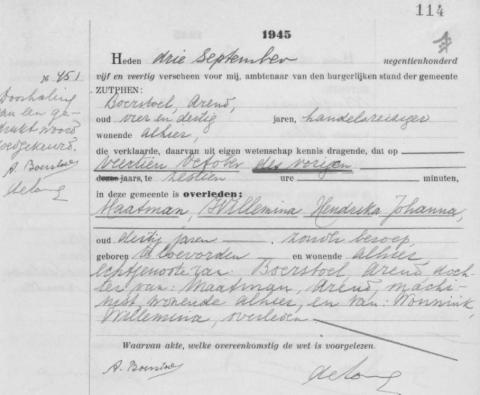 114
1945
Heden drie September negentienhonderd
vijf en veertig verscheen voor mij, ambtenaar van den burgerlijken stand der gemeente
ZUTPHEN:
Boerstoel, Arend,
oud vier en dertig jaren, handelsreiziger
wonende alhier,
die verklaarde, daarvan uit eigen wetenschap kennis dragende, dat op
veertien October des vorigen
dezes jaars, te zestien ure minuten,
in deze gemeente is overleden:
Maatman, Willemina Hendrika Johanna,
oud dertig jaren, zonder beroep,
geboren te Coevorden en wonende alhier,
echtgenoote van Boerstoel, Arend, doch-
ter van: Maatman, Arend, machi-
nist, wonende alhier, en van: Wonnink,
Willemina, overleden
Waarvan akte, welke overeenkomstig de wet is voorgelezen.
A. Boerstoel
de Jong
451
Doorhaling
van een ge-
drukt woord
goedgekeurd.
A. Boerstoel
de Jong